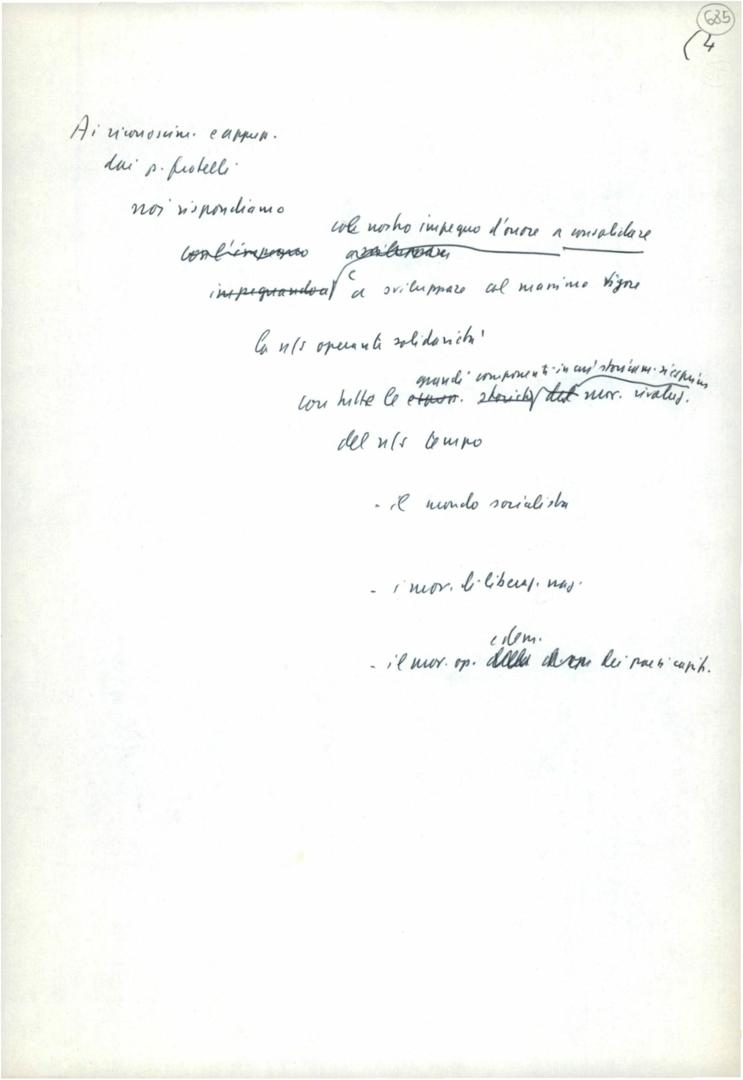 685
(4
Ai riconoscim. e appun.
dai p. fratelli
noi rispondiamo
col nostro impegno d'onore a consolidare
con l'impegno
impegnandoci e a sviluppare al massimo vigore
la n/s operante solidarietà
grandi componenti in cui storicam. si esprime
con tutte le storiche del mov. rivoluz.
del n/s tempo
- il mondo socialista
- i mov. di liberaz. naz.
e dem.
- il mov. op. della dei paesi capit.